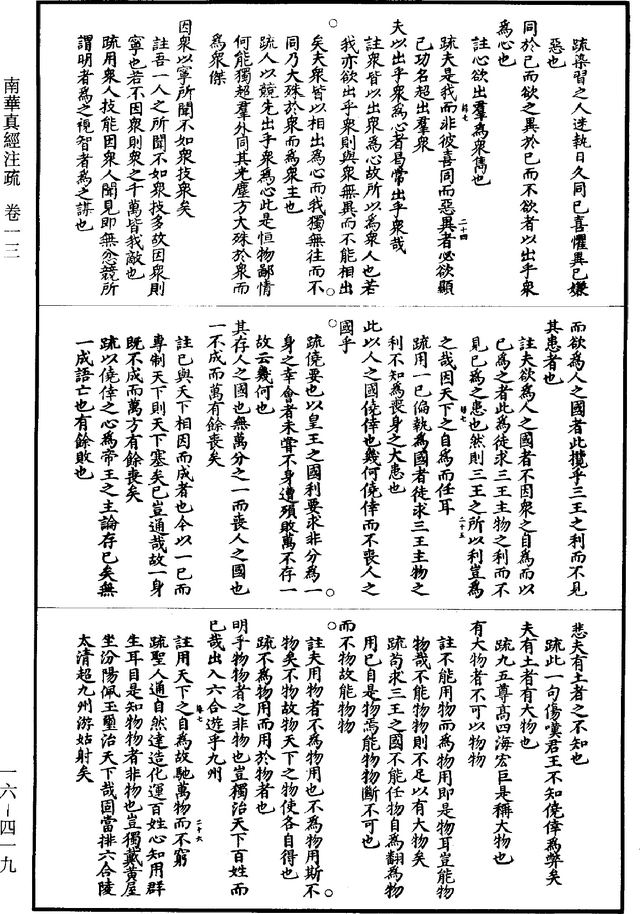 南華真經注疏 卷一三
一六－四一九
疏染習之人迷執日久同已喜懼異已嫌
惡也
同於已而欲之異於已而不欲者以出乎衆
為心也
註心欲出羣為衆雋也
疏夫是我而非彼喜同而惡異者必欲顯
己功名超出羣衆
夫以出乎衆為心者曷常出乎衆哉
註衆皆以出衆為心故所以為衆人也若
我亦欲出乎衆則與衆無異而不能相出
矣夫衆皆以相出為心而我獨無往而不
同乃大殊於衆而為衆主也
疏人以競先出乎衆為心此是恒物鄙情
何能獨超羣外同其光塵方大殊於衆而
為衆傑
因衆以寧所聞不如衆技衆矣
註吾一人之所聞不如衆技多故因衆則
寧也若不因衆則衆之千萬皆我敵也
疏用衆人技能因衆人聞見即無忿競所
謂明者為之視智者為之謀也
而欲為人之國者此攬乎三王之利而不見
其患者也
註夫欲為人之國者不因衆之自為而以
已為之者此為徒求三王主物之利而不
見已為之患也然則三王之所以利豈為
之哉因天下之自為而任耳
疏用一已偏執為國者徒求三王主物之
利不知為喪身之大患也
此以人之國僥倖也幾何僥倖而不喪人之
國乎
疏僥要也以皇王之國利要求非分為一
身之幸會者未嘗不身遭殞敗萬不存一
故云幾何也
其存人之國也無萬分之一而喪人之國也
一不成而萬有餘喪矣
註已與天下相因而成者也今以一已而
專制天下則天下塞矣已豈通哉故一身
既不成而萬方有餘喪矣
疏以僥倖之心為帝王之主論存已矣無
一成語亡也有餘敗也
悲夫有土者之不知也
疏此一句傷嘆君王不知僥倖為弊矣
夫有土者有大物也
疏九五尊高四海宏巨是稱大物也
有大物者不可以物物
註不能用物而為物用即是物耳豈能物
物哉不能物物則不足以有大物矣
疏苟求三王之國不能任物自為翻為物
用已自是物焉能物物斷不可也
而不物故能物物
註夫用物者不為物用也不為物用斯不
物矣不物故物天下之物使各自得也
疏不為物用而用於物者也
明乎物物者之非物也豈獨治天下百姓而
已哉出入六合遊乎九州
註用天下之自為故馳萬物而不窮
疏聖人通自然達造化運百姓心知用群
生耳目是知物物者非物也豈獨戴黃屋
坐汾陽佩玉璽治天下哉固當排六合陵
太清超九州游姑射矣